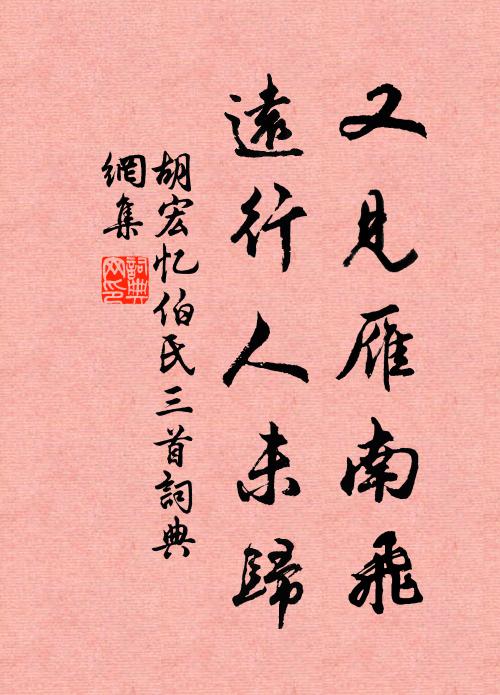 又見雁南飛
遠行人未歸
胡宏忆伯氏三首詞典
網集
詞典
网印